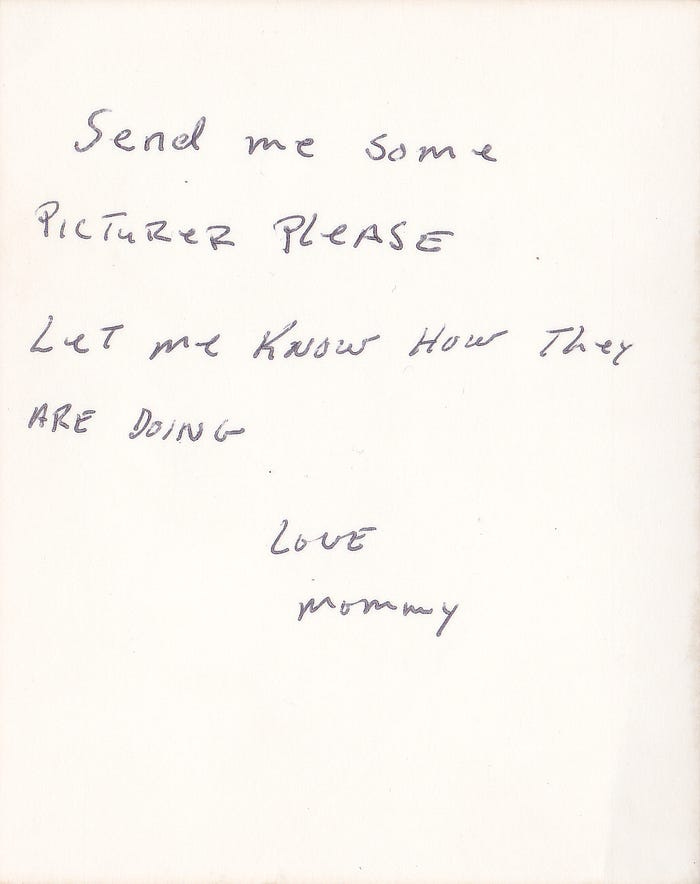 Send me some
PICTuReR PleASE
LeT me KNOW HOW They
ARE DOING
LOVE
mommy